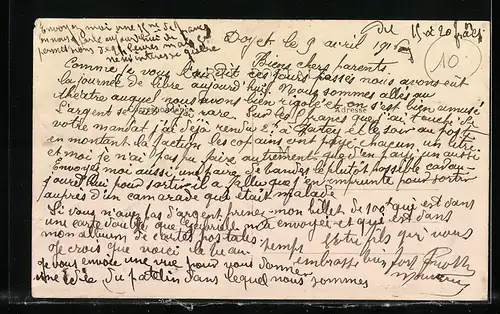 Envoyez moi une paire de
permissions de 24 heures mais
Doyet le 9 avril 191
15 et 20 frs
10
Biens chers parents
Comme je vous l'ai dit ces jours passés nous avons eût
la journée de libre aujourd'hui. Nous sommes alles au
théâtre auquel nous avons bien rigolé et on s'est bien amusé
L'argent se fait déjà rare. Sur les francs que j'ai touché
votre mandat j'ai déjà rendu 2 à et le soir au poste
en montant la faction les copains ont payé chacun un litre
et moi je n'ai pas pu faire autrement que d'en payer un aussi
Envoyez moi aussi une paire de bandes le plutôt possible car au-
jourd'hui pour sortir il a fallu que j'en emprunte pour sortir
auprès d'un camarade qui était malade.
Adresse
Si vous n'avez pas d'argent prenez mon billet de 100f qui est dans
une carte double que m'a envoyée et qui est dans
mon album de cartes postales. Votre fils qui vous
Je crois que voici le beau temps embrasse bien fort
Je vous envoie une vue pour vous donner
une idée du patelin dans lequel nous sommes